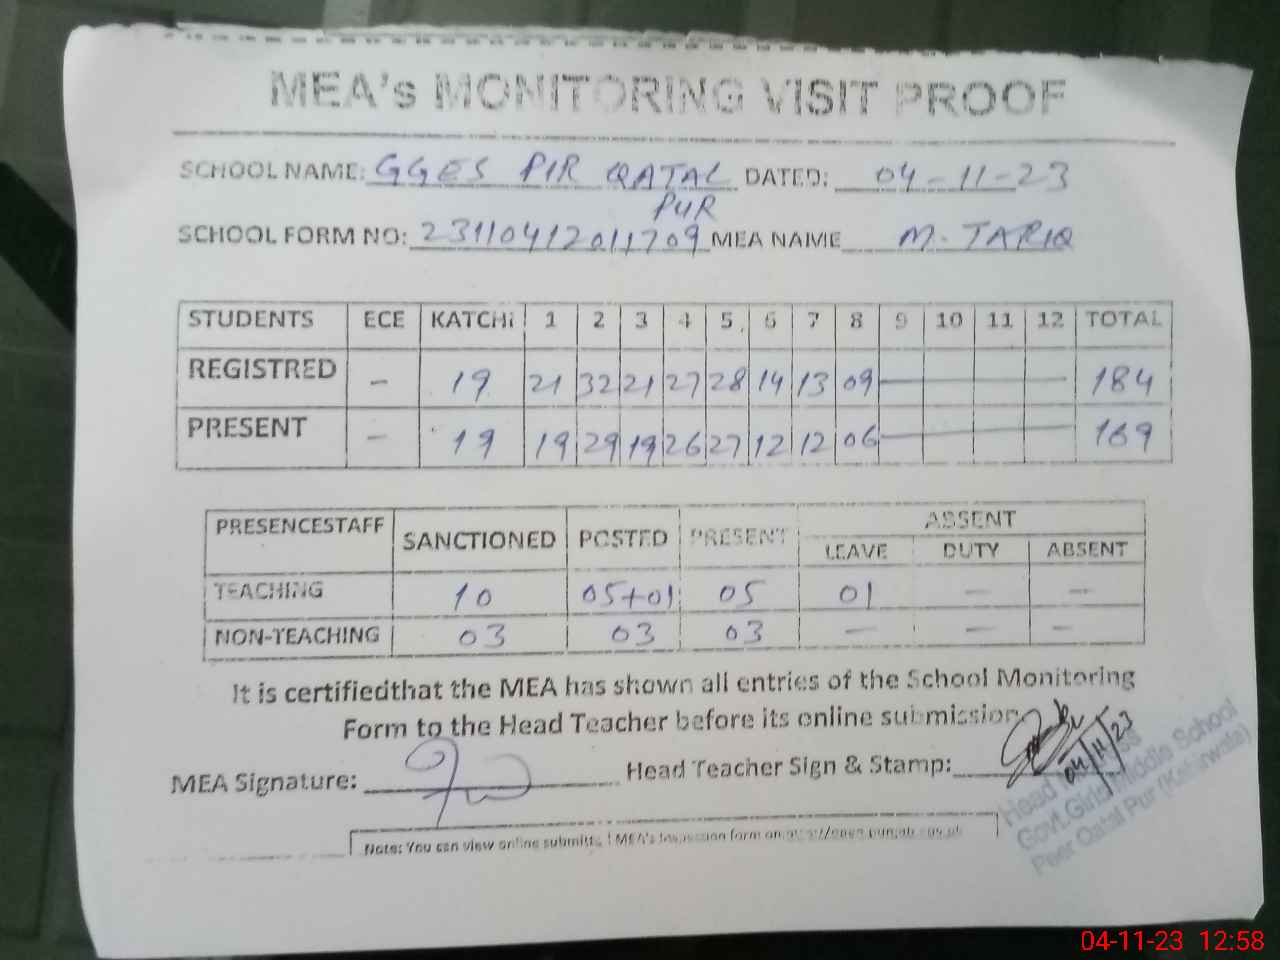 MEA's MONITORING VISIT PROOF
SCHOOL NAME: GGES PIR QATAL PUR DATED: 04-11-23
SCHOOL FORM NO: 23110412011709 MEA NAME M. TARIQ
STUDENTS ECE KATCHi 1 2 3 4 5 6 7 8 9 10 11 12 TOTAL
REGISTRED - 19 21 32 21 27 28 14 13 09 - 184
PRESENT - 19 19 29 19 26 27 12 12 06 - 169
PRESENCESTAFF SANCTIONED POSTED PRESENT ABSENT
LEAVE DUTY ABSENT
TEACHING 10 05+01 05 01 - -
NON-TEACHING 03 03 03 - - -
It is certifiedthat the MEA has shown all entries of the School Monitoring
Form to the Head Teacher before its online submission
MEA Signature: Head Teacher Sign & Stamp:
04/11/23
Head
Govt.Girls Middle School
Peer Qatal Pur
Note: You can view online submitted MEA's Inspection form on
04-11-23 12:58